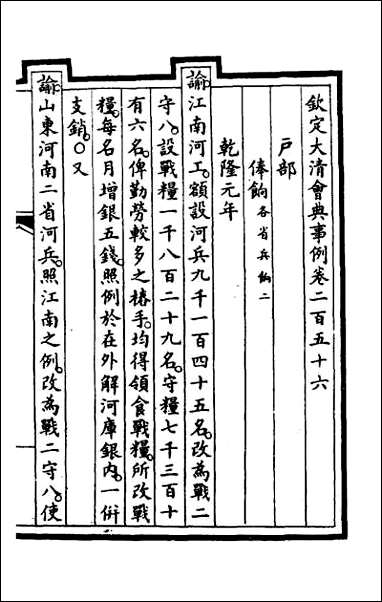 欽定大清會典事例卷二百五十六
戶部
俸餉各省兵餉二
乾隆元年
諭江南河工。額設河兵九千一百四十五名。改為戰二
守八。設戰糧一千八百二十九名。守糧七千三百十
有六名。俾勤勞較多之樁手。均得領食戰糧。所改戰
糧。每名月增銀五錢。照例於在外解河庫銀內。一併
支銷。〇又
諭山東河南二省河兵。照江南之例。改為戰二守八。使